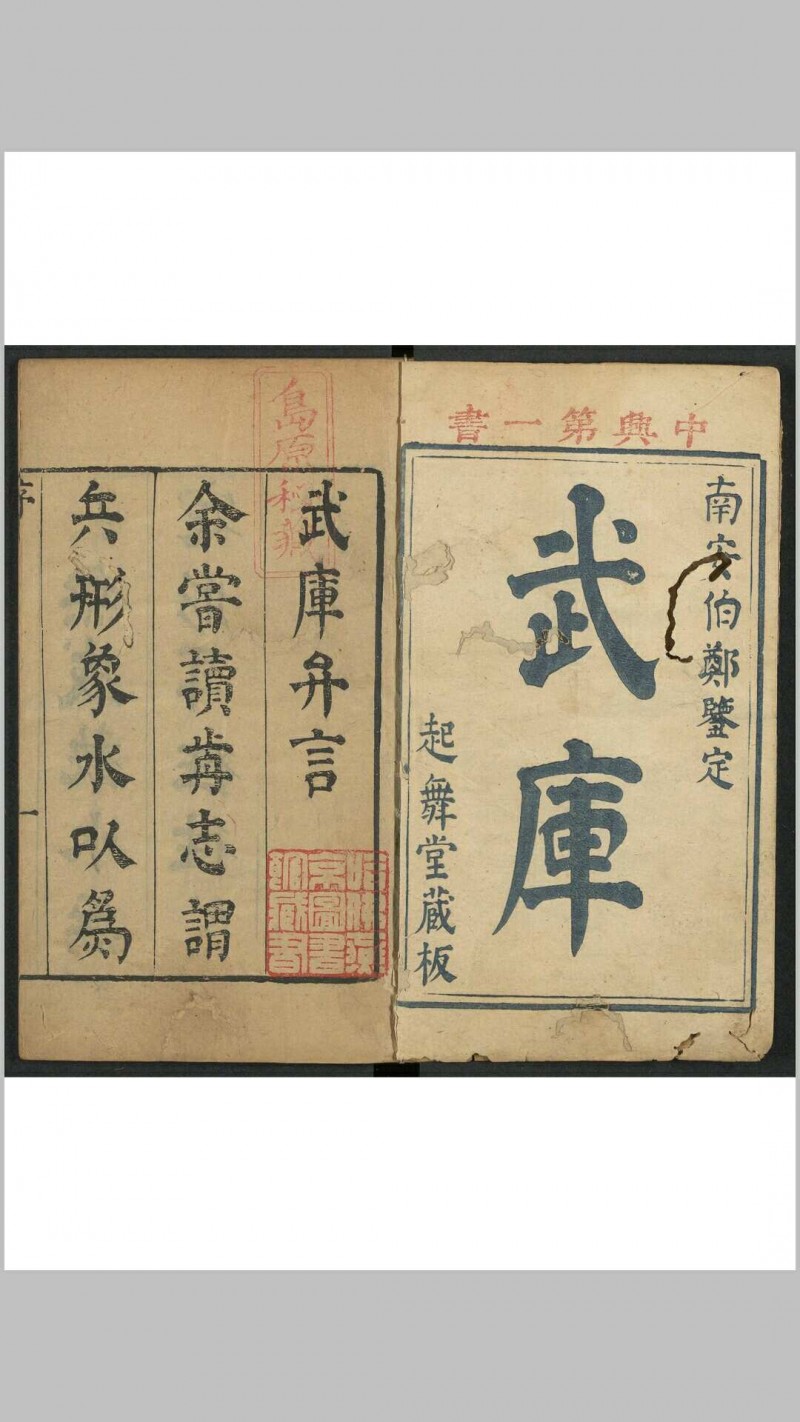 中興第一書
南安伯鄭鑒定
武庫
起舞堂藏板
島原秘藏
武庫弁言
余嘗讀歬志謂
兵形象水以爲
序
一